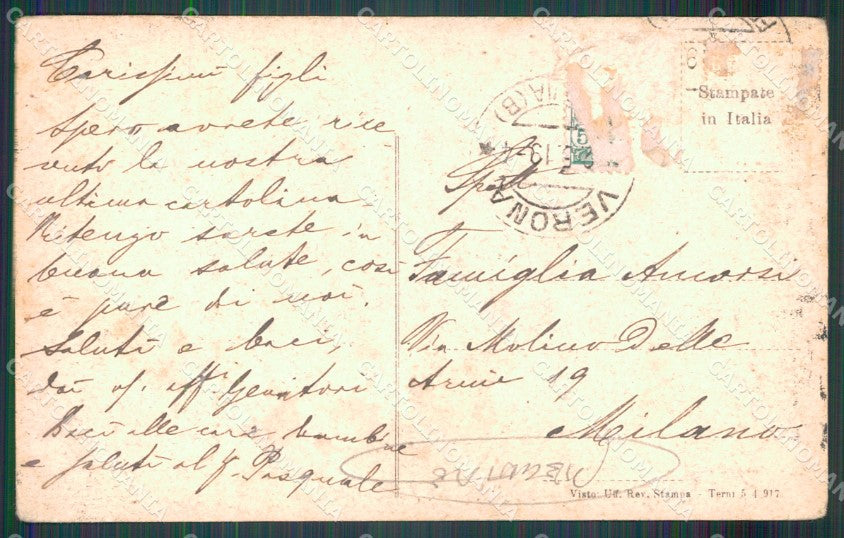 Carissimi figli
Spero avrete rice
vuto la nostra
ultima cartolina.
Ritengo sarete in
buona salute, così
è pure di noi.
Saluti e baci,
dai v. aff. Genitori
Baci alle care bambine
e saluti al f. Pasquale
Stampate
in Italia
VERONA
5
Spett
Famiglia Ancorsi
Via Molino Delle
Armi 19
Milano
Visto: Uff. Rev. Stampa - Terni 5 4 917
CARTOLINOMANIA